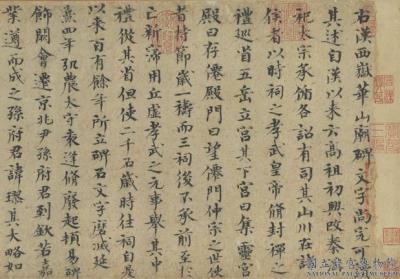 右漢西嶽華山廟碑文字尚完可
其述自漢以來云高祖初興改秦淫
祀太宗承循各詔有司其山川在諸
侯者以時祠之孝武皇帝脩封禪之
禮巡省五嶽立宮其下宮曰集靈宮
殿曰存僊殿門曰望僊門仲宗之世使
者持節歲一禱而三祠後不承前至於
亡新寖用丘虛孝武之元事舉其中
禮從其省但使二千石歲時往祠自是
以來百有餘年所立碑石文字磨滅延
熹四年弘農太守袁逢脩廢起頓易碑
飾闕會遷京兆尹孫府君到欽若嘉
業遵而成之孫府君諱璆其大略如